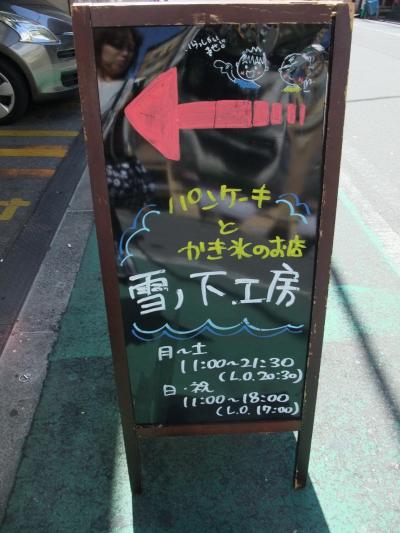 いらっしゃい
ませ。
パンケーキ
と
かき氷のお店
雪ノ下工房
月～土
11:00～21:30
(L.O.20:30)
日・祝
11:00～18:00
(L.O.17:00)